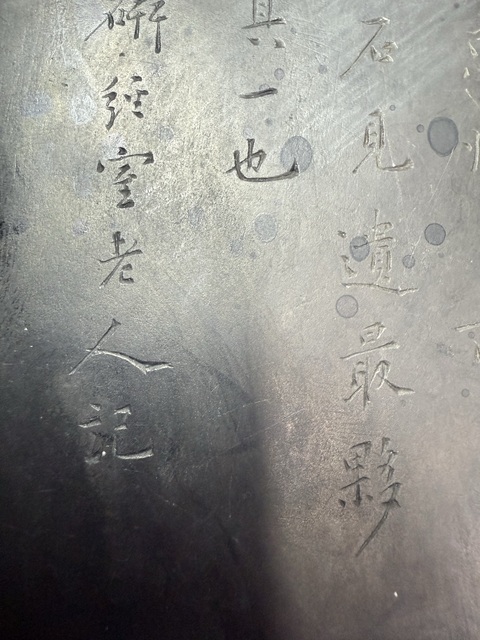 石見遺最夥
其一也
揅經室老人記